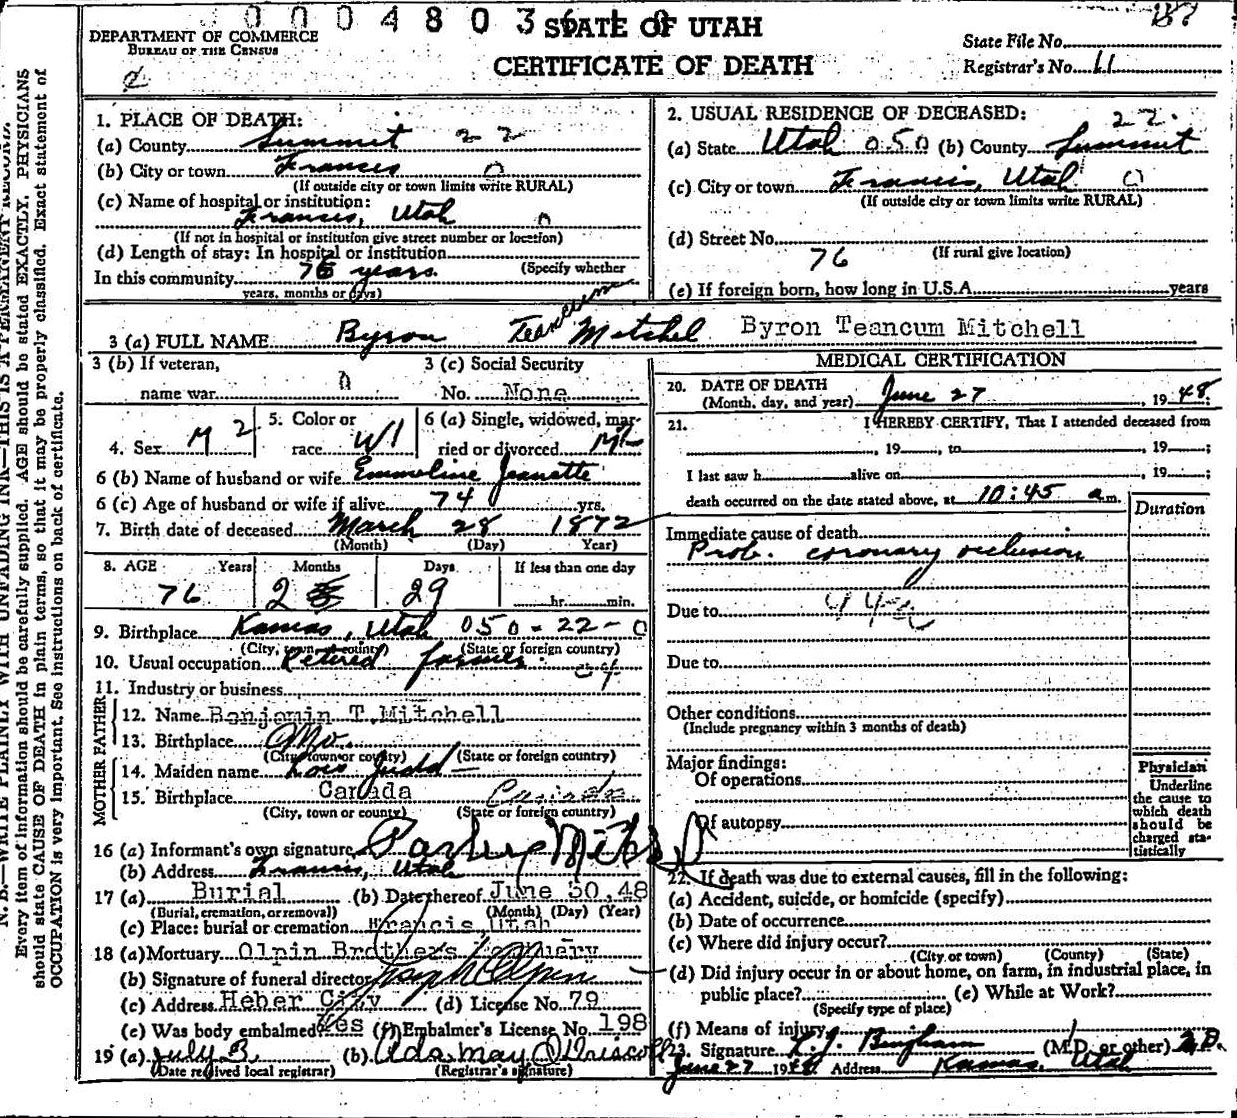 0 0 0 4 8 0 3
STATE OF UTAH
CERTIFICATE OF DEATH
DEPARTMENT OF COMMERCE
BUREAU OF THE CENSUS
State File No.
Registrar's No. 11
N. B.—WRITE PLAINLY WITH UNFADING INK—THIS IS A PERMANENT RECORD.
Every item of information should be carefully supplied. AGE should be stated EXACTLY. PHYSICIANS
should state CAUSE OF DEATH in plain terms, so that it may be properly classified. Exact statement of
OCCUPATION is very important. See instructions on back of certificate.
1. PLACE OF DEATH:
(a) County Summit 22
(b) City or town Francis 0
(If outside city or town limits write RURAL)
(c) Name of hospital or institution:
Francis, Utah 0
(If not in hospital or institution give street number or location)
(d) Length of stay: In hospital or institution
In this community 76 years (Specify whether
years, months or days)
2. USUAL RESIDENCE OF DECEASED:
22
(a) State Utah 050 (b) County Summit
(c) City or town Francis, Utah 0
(If outside city or town limits write RURAL)
(d) Street No.
76 (If rural give location)
(e) If foreign born, how long in U.S.A. years
3 (a) FULL NAME Byron Teancum Mitchel Byron Teancum Mitchell
3 (b) If veteran,
name war
3 (c) Social Security
No. None
4. Sex M 2
5. Color or
race W 1
6 (a) Single, widowed, mar-
ried or divorced M
6 (b) Name of husband or wife Emmeline Jeanette
6 (c) Age of husband or wife if alive 74 yrs.
7. Birth date of deceased March 28 1872
(Month) (Day) Year)
8. AGE Years Months Days If less than one day
76 2 29 hr. min.
9. Birthplace Kamas, Utah 050-22-0
(City, town or county) (State or foreign country)
10. Usual occupation Retired farmer
11. Industry or business
FATHER
12. Name Benjamin T. Mitchell
13. Birthplace Mo.
(City, town or county) (State or foreign country)
MOTHER
14. Maiden name Lois Judd
15. Birthplace Canada Canada
(City, town or county) (State or foreign country)
16 (a) Informant's own signature
(b) Address Francis, Utah
17 (a) Burial (b) Date thereof June 30, 48
(Burial, cremation, or removal) (Month) (Day) (Year)
(c) Place: burial or cremation Francis Utah
18 (a) Mortuary Olpin Brothers Mortuary
(b) Signature of funeral director Joseph Olpin
(c) Address Heber City (d) License No. 79
(e) Was body embalmed Yes (f) Embalmer's License No. 198
19 (a) July 3 (b) Ada May O'Driscoll
(Date received local registrar) (Registrar's signature)
MEDICAL CERTIFICATION
20. DATE OF DEATH
(Month, day, and year) June 27, 1948;
21. I HEREBY CERTIFY, That I attended deceased from
, 19 , to , 19 ;
I last saw h alive on , 19 ;
death occurred on the date stated above, at 10:45 a m.
Duration
Immediate cause of death
Prob. coronary occlusion
Due to
Due to
Other conditions
(Include pregnancy within 3 months of death)
Major findings:
Of operations
Of autopsy
Physician
Underline
the cause to
which death
should be
charged sta-
tistically
22. If death was due to external causes, fill in the following:
(a) Accident, suicide, or homicide (specify)
(b) Date of occurrence
(c) Where did injury occur?
(City or town) (County) (State)
(d) Did injury occur in or about home, on farm, in industrial place, in
public place? (e) While at Work?
(Specify type of place)
(f) Means of injury
23. Signature R. J. Bingham (M.D. or other) M.D.
June 27 1948 Address Kamas, Utah